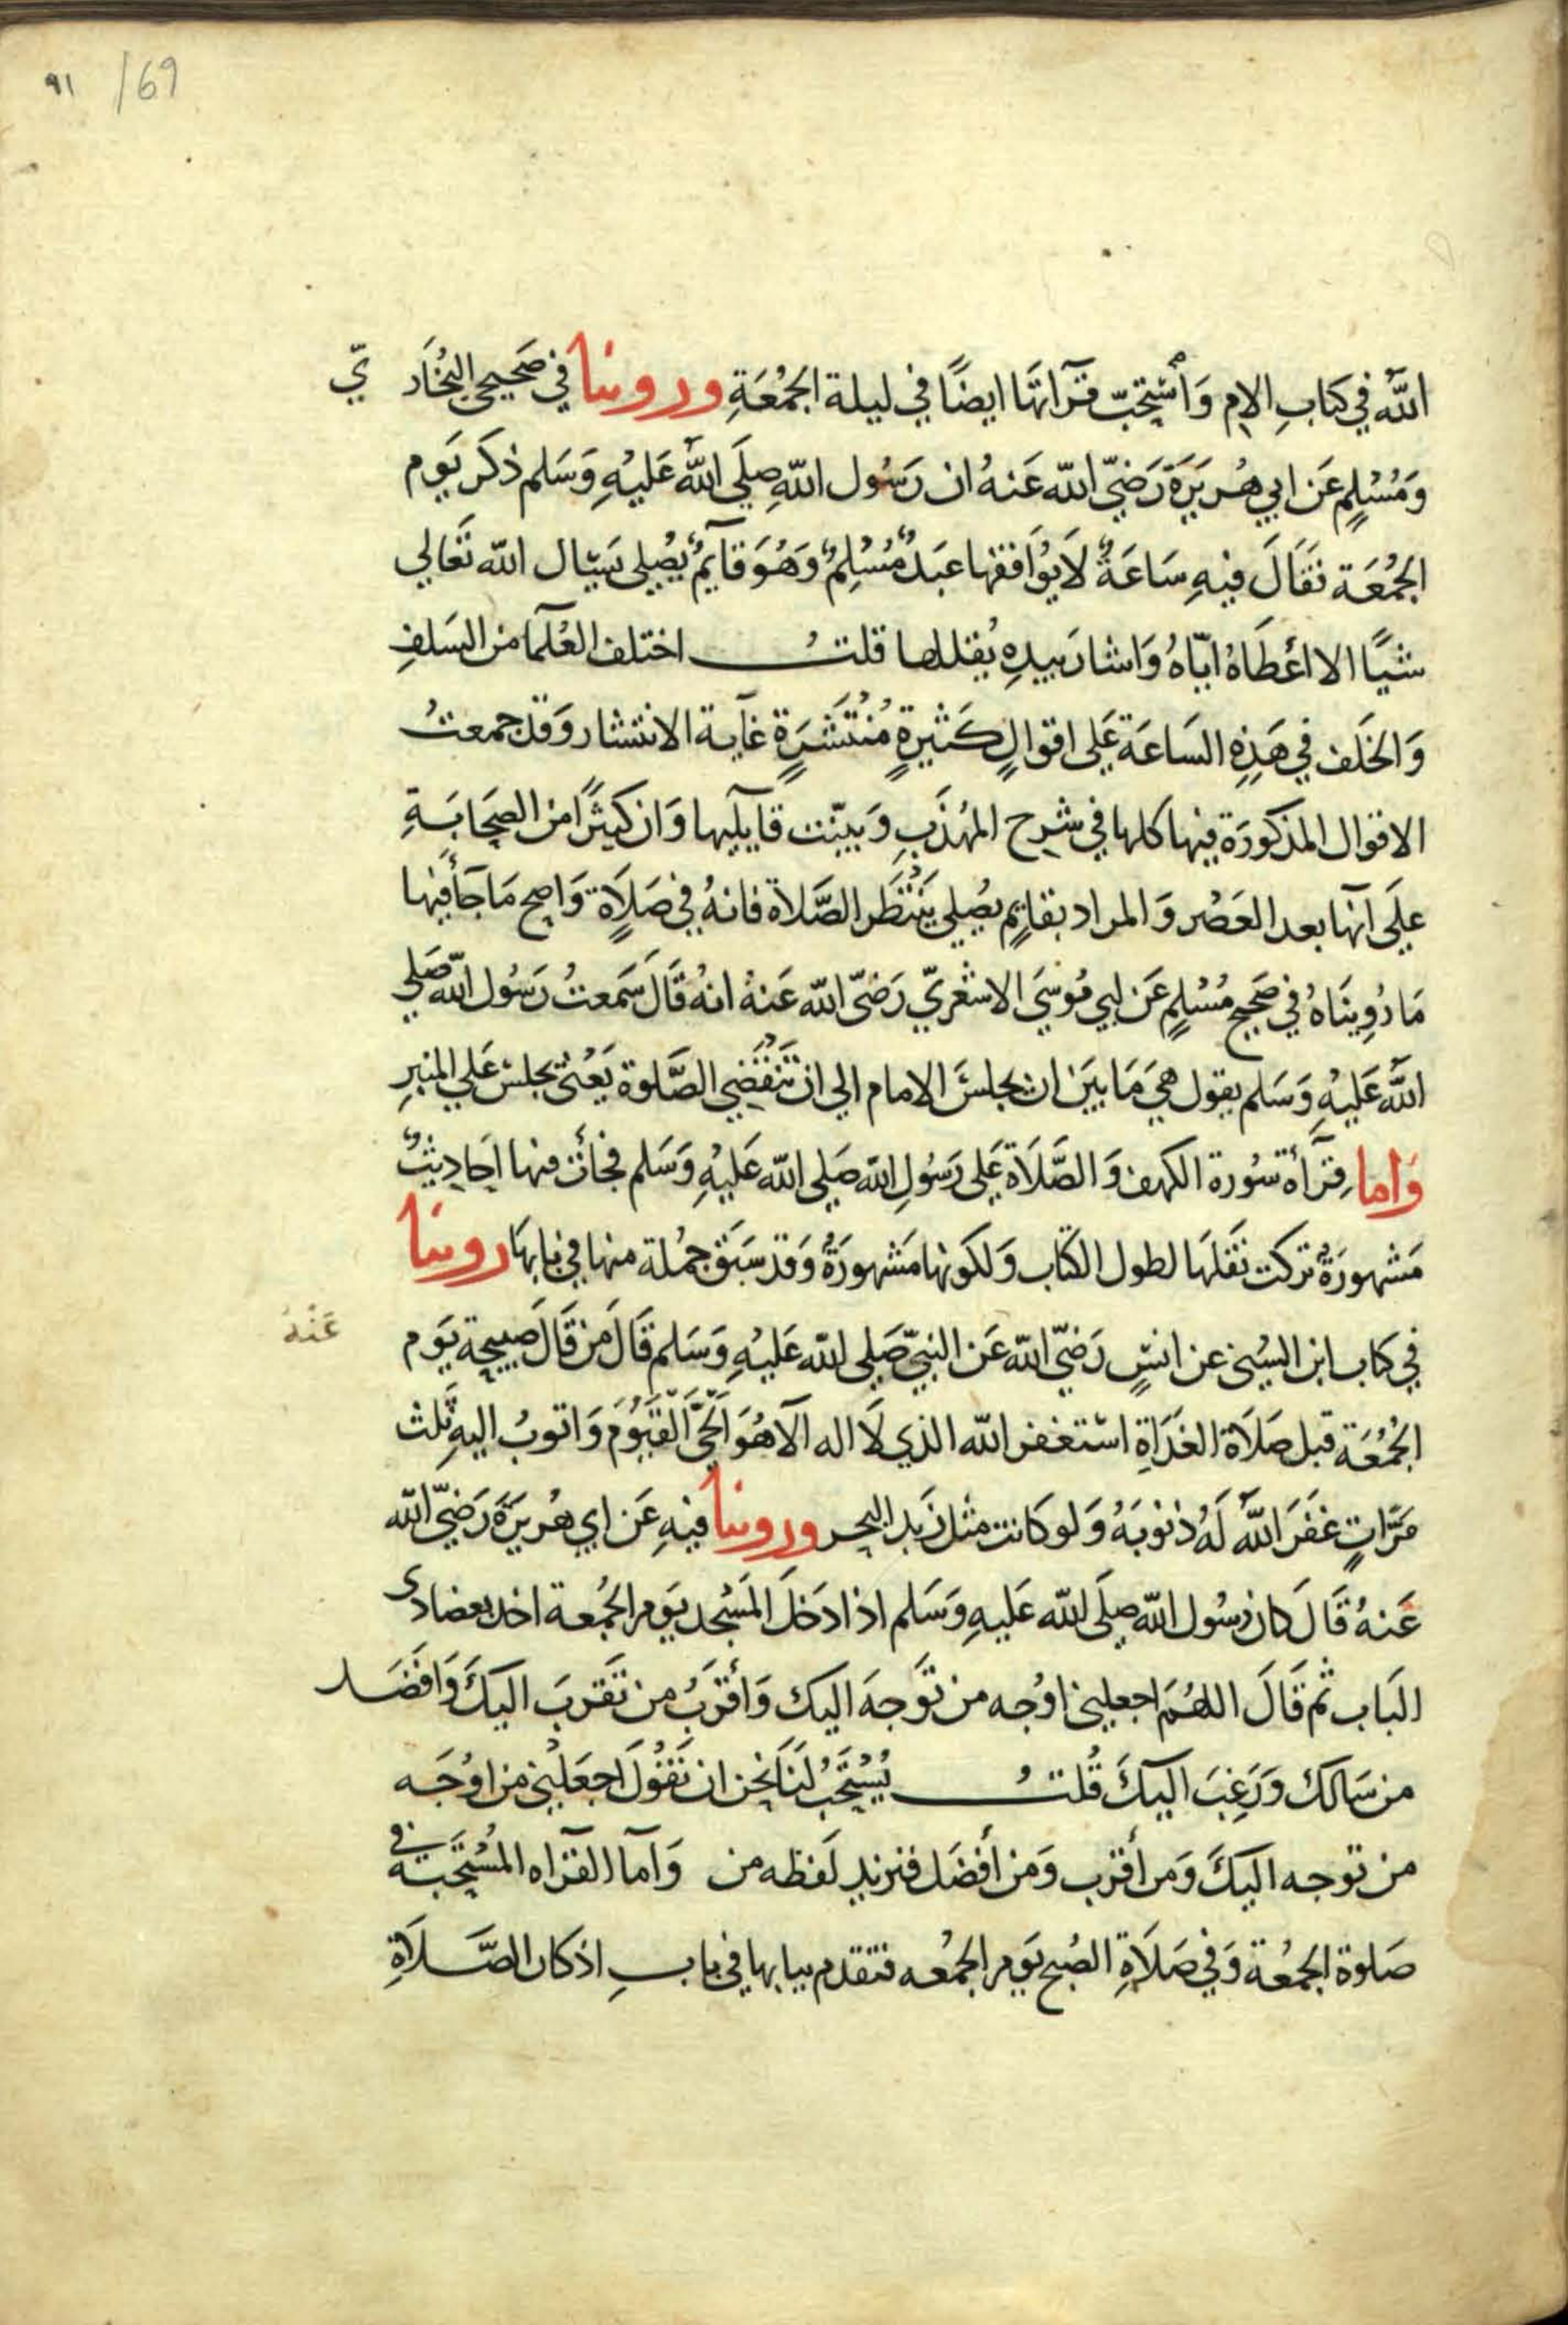 ٩١ /69
اللّٰه في كتابِ الام وَأستحبّ قرآتهَا ايضًا في ليلة الجمُعَةِ وروينا في صَحيحي البُخَاريّ
وَمُسْلِمٍ عَن ابي هُريَرَة رَضيّ اللّٰه عَنهُ ان رَسُول اللّٰهِ صلَي اللّٰهُ عَليْهِ وَسَلم ذكَر يَوم
الجمُعَة فقَالَ فيهِ سَاعَةٌ لَا يُوَافقها عبَدٌ مُسْلِمٌ وَهُوَ قآيمٌ يُصلي يَسَال اللّٰه تَعَالي
شيًا الا اعْطَاهُ ايّاهُ وَاشار بيدِهِ يُقللها قلتُ اختلف العُلَمآ من السَلفِ
وَالخَلف في هَذِهِ السَاعَة عَلى اقوالٍ كَثيرةٍ مُنْتَشرَةٍ غآية الانتشار وَقد جمعتُ
الاقوال المذكورَة فيها كلها في شرح المهُذَبِ وَبيّنت قايليها وَان كثيرًا من الصحَابَةِ
علَى انهَّا بعد العَصْر وَالمراد بقايمٍ يُصلي يَنْتَظر الصَّلاة فانهُ في صَلاَةٍ وَاصح مَا جَأ فيها
مَا رُوِينَاهُ في صَحيح مُسْلِمٍ عَن ابي مُوسَي الاشعَريّ رَضيّ اللّٰه عَنهُ انهُ قَالَ سَمعتُ رَسُول اللّٰه صَلي
اللّٰهُ عَليْهِ وَسَلم يقول هيَ مَا بيَن ان يجلسَ الامام الي ان تَنقَضي الصَّلوة يَعْني يجلس عَلي المنبرِ
وَاما قِرآءة سُورة الكهف وَالصَّلاَة عَلى رَسُولِ اللّٰه صَلي اللّٰه عَليْهِ وَسَلم فجأت فيها احَادِيثٌ
مَشهورَةٌ تركت نقَلهَا لطول الكتاب وَلكونها مَشهورَةٌ وَقد سَبَق جمُلة منها في بابهَا روينا
في كتاب ابن السُني عن انسٍ رَضيّ اللّٰه عَن النبيّ صَلي اللّٰه عَليْهِ وَسَلم قَالَ مَن قَالَ صَبيحة يَوم
عَنْهُ
الجمُعَة قبل صَلاَة الغَدَاةِ اسْتغفر اللّٰه الذي لَا اله الّا هُوَ الحَيَّ القَيُّوم وَاتوبُ اليهِ ثلث
مَرّاتٍ غفَرَ اللّٰهُ لَهُ ذنوبَهُ وَلو كَانت مثل زبَد البحر وروينا فيهِ عَن ابي هُريَرَة رَضيّ اللّٰه
عَنهُ قَالَ كان رسُول اللّٰهِ صلَي اللّٰه عَليْهِ وَسَلم اذا دَخَلَ المَسْجد يَوم الجمُعة اخذ بعضادى
البَاب ثم قَالَ اللهُم اجعلني اوْجه من تَوجهَ اليك وَأقرَبُ من تَقربَ اليكَ وَافضَل
من سَالك وَرَغِبَ اليكَ قُلتُ يُسْتَحَبُ لنَا نحن ان نَقُولَ اجعَلْني من اوْجَه
من توجه اليكَ وَمن أقرب وَمن أفضَل فنزيد لَفظه من وَأما القرآه المُسْتحَبة في
صَلوة الجمُعَة وَفي صَلاَةِ الصُبح يَوم الجمُعه فتقدم بيابها في بابِ اذكار الصَّلاَةِ